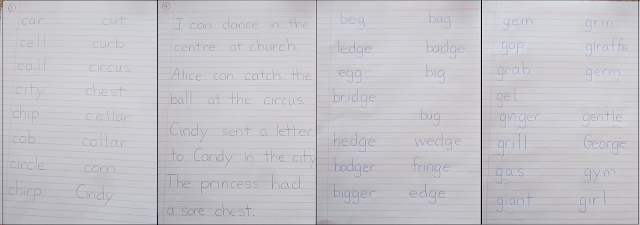 car cut
cell curb
call circus
city chest
chip cellar
cob collar
circle corn
chirp Cindy
I can dance in the
centre at church.
Alice can catch the
ball at the circus.
Cindy sent a letter
to Candy in the city
The princess had
a sore chest.
beg bag
ledge badge
egg big
bridge
bug
hedge wedge
badger fringe
bigger edge
gem grin
gap giraffe
grab germ
gel
ginger gentle
grill George
gas gym
giant girl